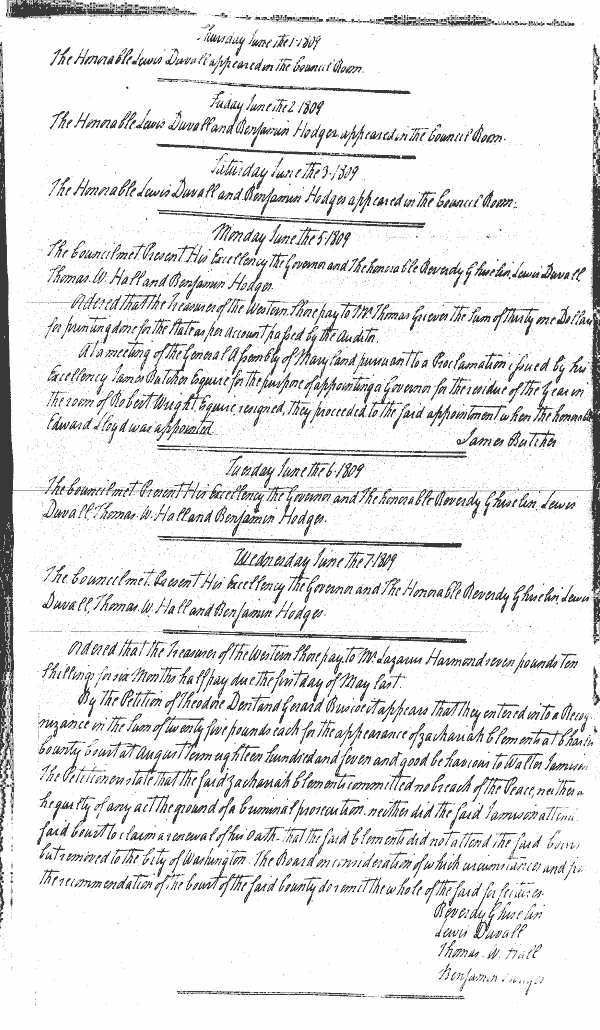 Thursday June the 1-1809
The Honorable Lewis Duvall appeared in the Council Room.
Friday June the 2-1809
The Honorable Lewis Duvall and Benjamin Hodges appeared in the Council Room.
Saturday June the 3-1809
The Honorable Lewis Duvall and Benjamin Hodges appeared in the Council Room.
Monday June the 5-1809
The Council met. Present His Excellency the Governor and The honorable Reverdy Ghiselin, Lewis Duvall,
Thomas. W. Hall and Benjamin Hodges.
Ordered that the Treasurer of the Western Shore pay to Mr Thomas Grieves the Sum of thirty one Dollars
for printing done for the State as per Account passed by the Auditor.
At a meeting of the General Assembly of Maryland pursuant to a Proclamation issued by his
Excellency James Butcher Esquire for the purpose of appointing a Governor for the residue of the Year in
the room of Robert Wright Esquire, resigned, they proceeded to the said appointment when the honorable
Edward Lloyd was appointed
James Butcher
Tuesday June the 6-1809
The Council met Present His Excellency the Governor and The honorable Reverdy Ghiselin, Lewis
Duvall, Thomas. W. Hall and Benjamin Hodges.
Wednesday June the 7-1809
The Council met. Present His Excellency the Governor and The Honorable Reverdy Ghiselin, Lewis
Duvall, Thomas. W. Hall and Benjamin Hodges.
Ordered that the Treasurer of the Western Shore pay to Mr Lazarus Harmond seven pounds ten
Shillings for six Months half pay due the first day of May last.
By the Petition of Theodore Dent and Gerard Briscoe it appears that they entered into a Recog
nizance in the Sum of twenty five pounds each for the appearance of Zachariah Clements at Charles
County Court at August Term eighteen hundred and seven and good behaviour to Walter Jamison
The Petitioners state that the said Zachariah Clements committed no breach of the Peace, neither
he guilty of any act the ground of a Criminal prosecution. neither did the said Jamison attend
said Court to claim a renewal of his Oath. that the said Clements did not attend the said Court
but removed to the City of Washington. The Board on consideration of which circumstances and
the recommendation of the Court of the said County do remit the whole of the said forfeitures.
Reverdy Ghiselin
Lewis Duvall
Thomas. W. Hall
Benjamin Hodges